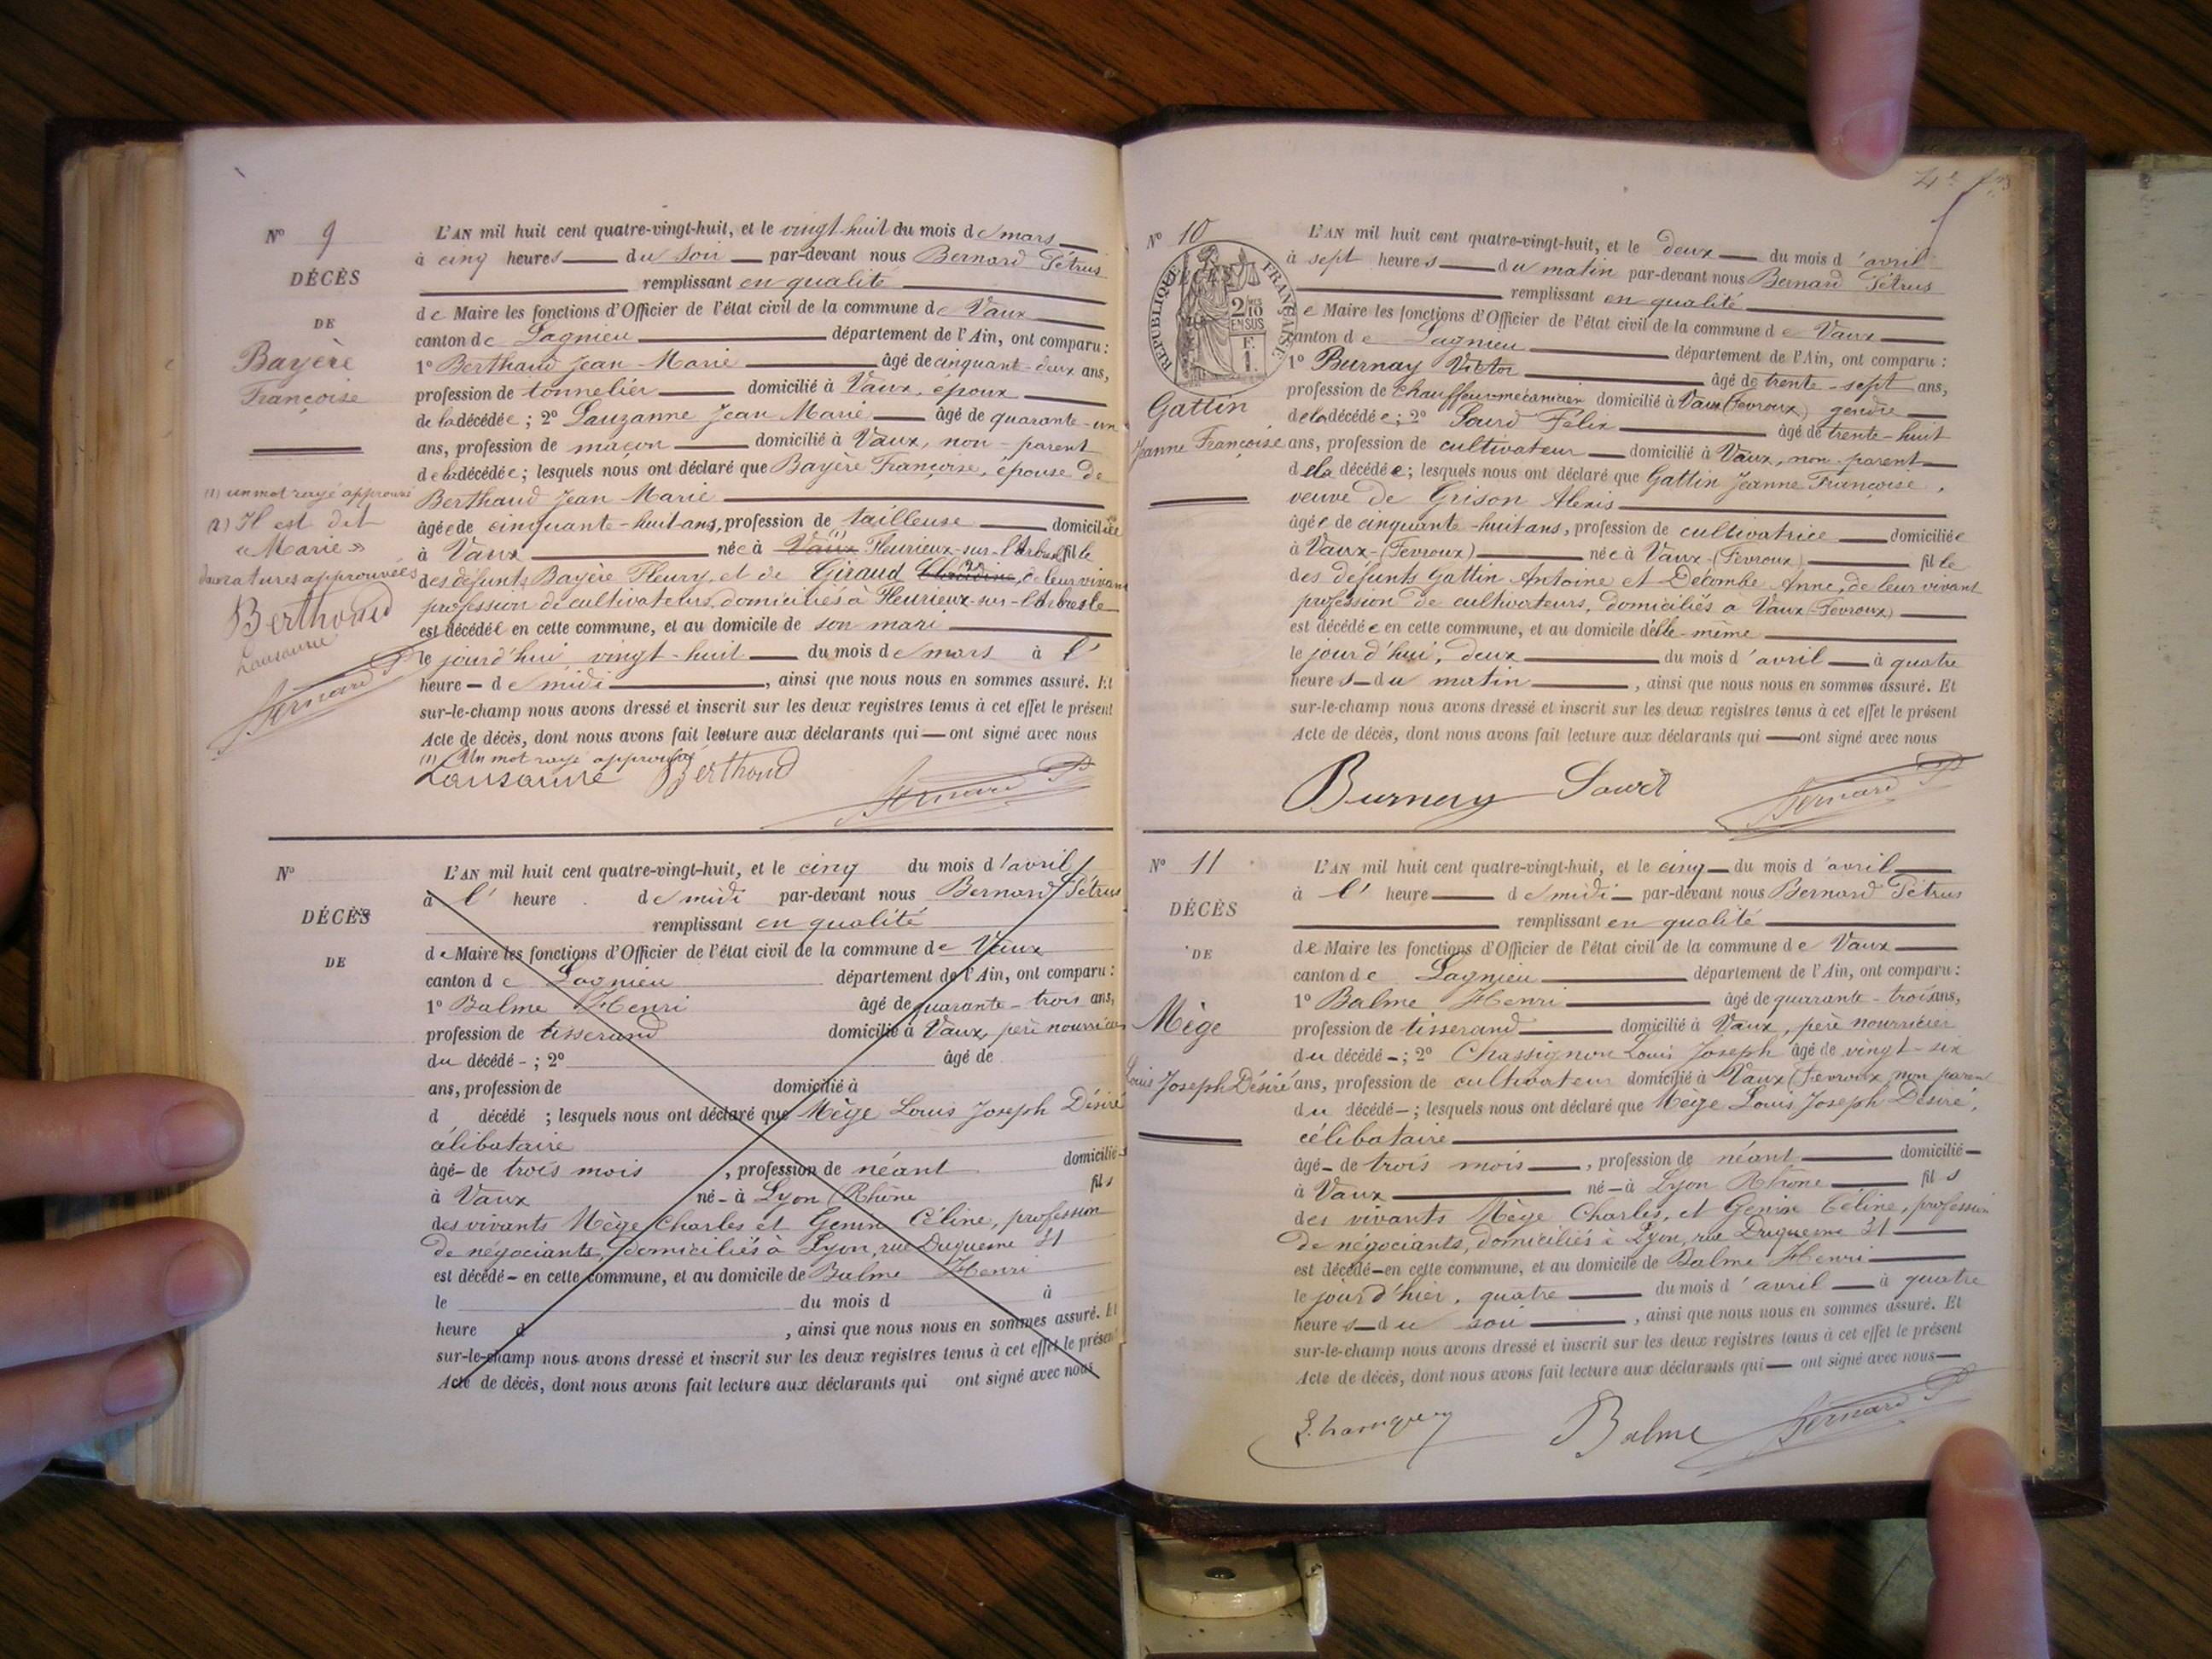 Nº 9
DÉCÈS
DE
Bayère
Françoise
(1) un mot rayé approuvé
(2) Il est dit
« Marie »
ratures approuvées
Berthoud
Lausanne
Bernard P
L'AN mil huit cent quatre-vingt-huit, et le vingt-huit du mois de mars
à cinq heures du soir par-devant nous Bernard Pétrus
remplissant en qualité
de Maire les fonctions d'Officier de l'état civil de la commune de Vaux
canton de Lagnieu département de l'Ain, ont comparu :
1º Berthaud Jean Marie âgé de cinquante-deux ans,
profession de tonnelier domicilié à Vaux, époux
de la décédée ; 2º Lauzanne Jean Marie âgé de quarante-un
ans, profession de maçon domicilié à Vaux, non-parent
de la décédée ; lesquels nous ont déclaré que Bayère Françoise, épouse de
Berthaud Jean Marie
âgée de cinquante-huit ans, profession de tailleuse domiciliée
à Vaux née à Vaux (1) Fleurieux-sur-l'Arbresle fille
des défunts Bayère Fleury, et de Giraud Claudine (2), de leur vivant
profession de cultivateurs, domiciliés à Fleurieux-sur-l'Arbresle
est décédée en cette commune, et au domicile de son mari
le jourd'hui vingt-huit du mois de mars à l'
heure de midi, ainsi que nous nous en sommes assuré. Et
sur-le-champ nous avons dressé et inscrit sur les deux registres tenus à cet effet le présent
Acte de décès, dont nous avons fait lecture aux déclarants qui ont signé avec nous
(1) Un mot rayé approuvé
Lausanne Berthoud
Bernard P
Nº
DÉCÈS
DE
L'AN mil huit cent quatre-vingt-huit, et le cinq du mois d'avril
à l' heure de midi par-devant nous Bernard Pétrus
remplissant en qualité
de Maire les fonctions d'Officier de l'état civil de la commune de Vaux
canton de Lagnieu département de l'Ain, ont comparu :
1º Balme Henri âgé de quarante-trois ans,
profession de tisserand domicilié à Vaux, père nourricier
du décédé - ; 2º âgé de
ans, profession de domicilié à
d décédé ; lesquels nous ont déclaré que Mège Louis Joseph Désiré
célibataire
âgé- de trois mois, profession de néant domicilié-
à Vaux né-à Lyon (Rhône fils
des vivants Mège Charles et Genin Céline, profession
de négociants, domiciliés à Lyon, rue Duquesne 31
est décédé- en cette commune, et au domicile de Balme Henri
le du mois d à
heure d, ainsi que nous nous en sommes assuré. Et
sur-le-champ nous avons dressé et inscrit sur les deux registres tenus à cet effet le présent
Acte de décès, dont nous avons fait lecture aux déclarants qui ont signé avec nous
Nº 10
RÉPUBLIQUE FRANÇAISE
2/10
EN SUS
F.
1.
Gattin
Jeanne Françoise
L'AN mil huit cent quatre-vingt-huit, et le deux du mois d'avril
à sept heures du matin par-devant nous Bernard Pétrus
remplissant en qualité
de Maire les fonctions d'Officier de l'état civil de la commune de Vaux
canton de Lagnieu département de l'Ain, ont comparu :
1º Burnay Victor âgé de trente-sept ans,
profession de chauffeur-mécanicien domicilié à Vaux (Fevroux) gendre
de la décédée ; 2º Sourd Félix âgé de trente-huit
ans, profession de cultivateur domicilié à Vaux, non-parent
de la décédée ; lesquels nous ont déclaré que Gattin Jeanne Françoise,
veuve de Grison Alexis
âgée de cinquante-huit ans, profession de cultivatrice domiciliée
à Vaux-(Fevroux) née à Vaux-(Fevroux) fille
des défunts Gattin Antoine et Décombe Anne, de leur vivant
profession de cultivateurs, domiciliés à Vaux (Fevroux)
est décédée en cette commune, et au domicile d'elle-même
le jourd'hui, deux du mois d'avril à quatre
heures du matin, ainsi que nous nous en sommes assuré. Et
sur-le-champ nous avons dressé et inscrit sur les deux registres tenus à cet effet le présent
Acte de décès, dont nous avons fait lecture aux déclarants qui ont signé avec nous
Burnay Sourd
Bernard P
Nº 11
DÉCÈS
DE
Mège
Louis Joseph Désiré
L'AN mil huit cent quatre-vingt-huit, et le cinq du mois d'avril
à l' heure de midi par-devant nous Bernard Pétrus
remplissant en qualité
de Maire les fonctions d'Officier de l'état civil de la commune de Vaux
canton de Lagnieu département de l'Ain, ont comparu :
1º Balme Henri âgé de quarante-trois ans,
profession de tisserand domicilié à Vaux, père nourricier
du décédé - ; 2º Chassignon Louis Joseph âgé de vingt-six
ans, profession de cultivateur domicilié à Vaux (Fevroux, non parent
du décédé - ; lesquels nous ont déclaré que Mège Louis Joseph Désiré,
célibataire
âgé- de trois mois, profession de néant domicilié-
à Vaux né-à Lyon Rhône fils
des vivants Mège Charles, et Genin Céline, profession
de négociants, domiciliés à Lyon, rue Duquesne 31
est décédé-en cette commune, et au domicile de Balme Henri
le jourd'hier, quatre du mois d'avril à quatre
heures du soir, ainsi que nous nous en sommes assuré. Et
sur-le-champ nous avons dressé et inscrit sur les deux registres tenus à cet effet le présent
Acte de décès, dont nous avons fait lecture aux déclarants qui ont signé avec nous
Balme Bernard P